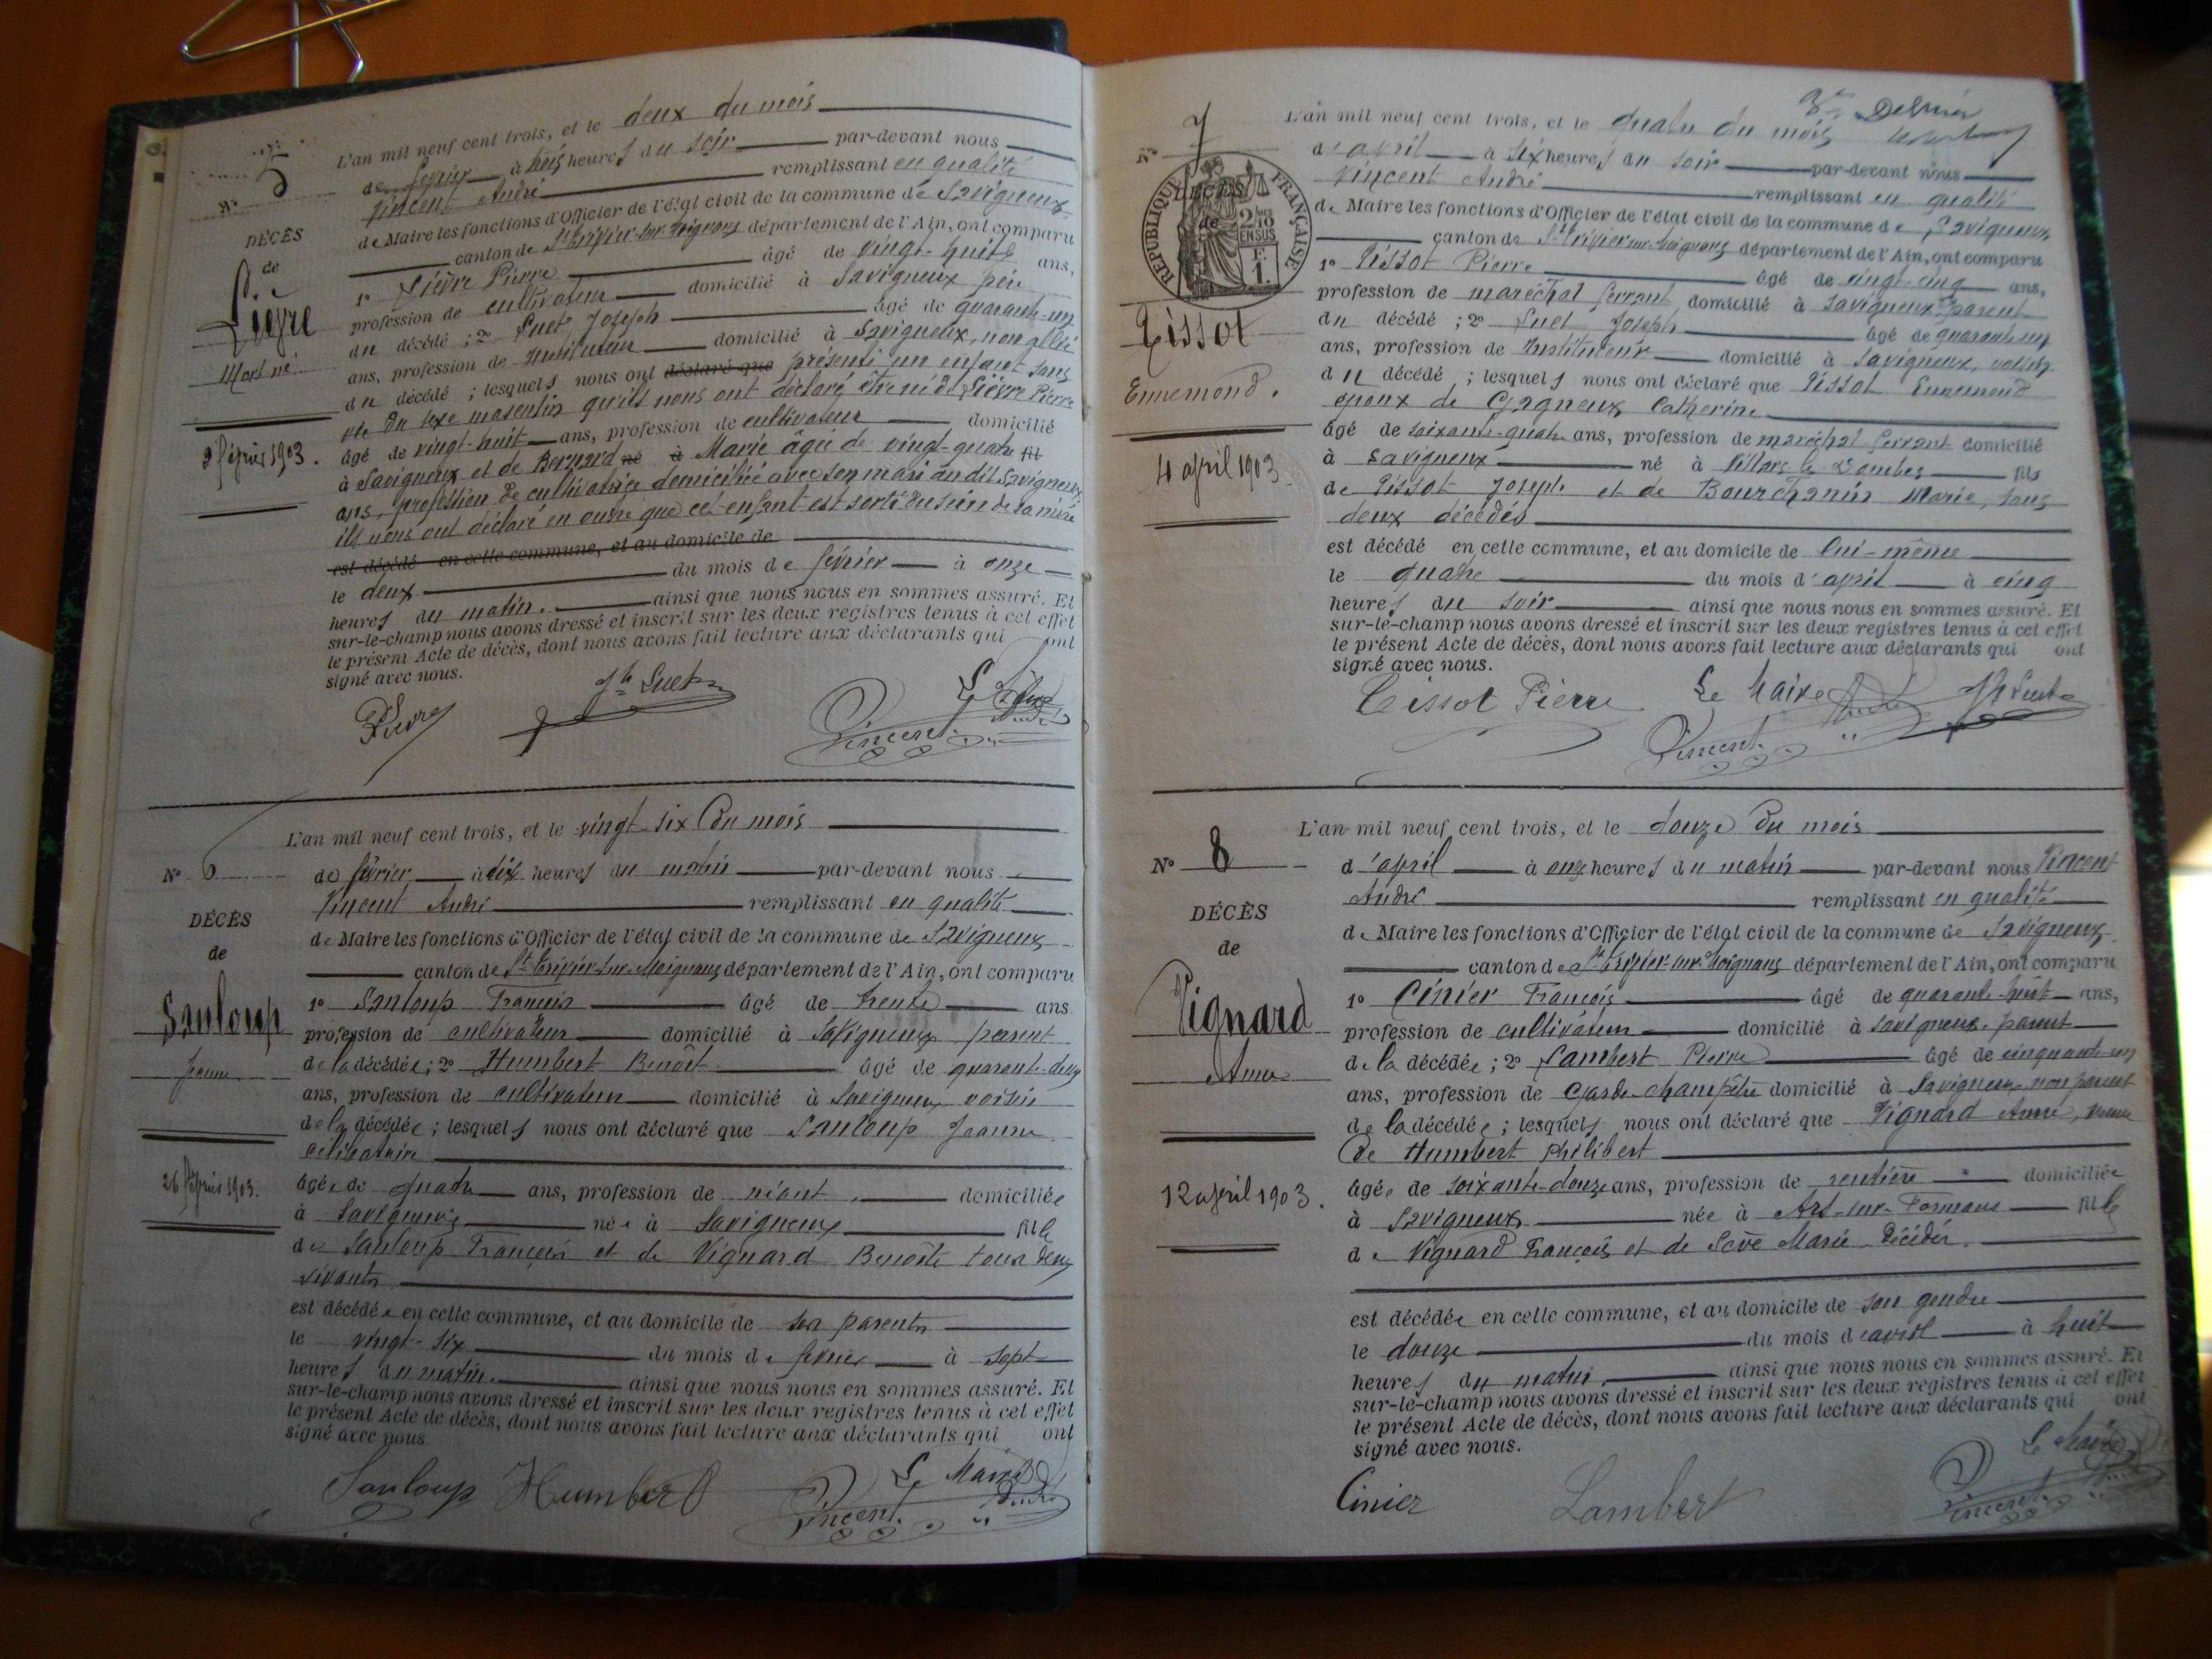 N° 5
DÉCÈS
de
Lièvre
Mort né
2 février 1903.
L'an mil neuf cent trois, et le deux du mois
de février à trois heures du soir par-devant nous
Vincent André remplissant en qualité
de Maire les fonctions d'Officier de l'état civil de la commune de Savigneux
canton de St Trivier-sur-Moignans département de l'Ain, ont comparu
1° Lièvre Pierre âgé de vingt-huit ans,
profession de cultivateur domicilié à Savigneux père
du décédé ; 2° Suet Joseph âgé de quarante-un
ans, profession de Instituteur domicilié à Savigneux, non allié
du décédé ; lesquels nous ont déclaré que présenté un enfant sans
vie du sexe masculin qu'ils nous ont déclaré être né de Lièvre Pierre
âgé de vingt-huit ans, profession de cultivateur domicilié
à Savigneux et de Bernard né à Marie âgée de vingt-quatre fil
ans, profession de cultivatrice domiciliée avec son mari au dit Savigneux
ils nous ont déclaré en outre que cet enfant est sorti du sein de sa mère
est décédé en cette commune, et au domicile de
le deux du mois de février à onze
heures du matin. ainsi que nous nous en sommes assuré. Et
sur-le-champ nous avons dressé et inscrit sur les deux registres tenus à cet effet
le présent Acte de décès, dont nous avons fait lecture aux déclarants qui ont
signé avec nous.
Lievre Jh Suet Le Maire
Vincent André
N° 6
DÉCÈS
de
Sanloup
Jeanne
26 février 1903.
L'an mil neuf cent trois, et le vingt-six du mois
de février à dix heures du matin par-devant nous
Vincent André remplissant en qualité
de Maire les fonctions d'Officier de l'état civil de la commune de Savigneux
canton de St Trivier-sur-Moignans département de l'Ain, ont comparu
1° Sanloup François âgé de trente ans
profession de cultivateur domicilié à Savigneux parent
de la décédée ; 2° Humbert Benoît âgé de quarante-deux
ans, profession de cultivateur domicilié à Savigneux voisin
de la décédée ; lesquels nous ont déclaré que Sanloup Jeanne
célibataire
âgée de quatre ans, profession de néant domiciliée
à Savigneux née à Savigneux fille
de Sanloup François et de Vignard Benoîte tous deux
vivants
est décédée en cette commune, et au domicile de ses parents
le vingt-six du mois de février à sept
heures du matin. ainsi que nous nous en sommes assuré. Et
sur-le-champ nous avons dressé et inscrit sur les deux registres tenus à cet effet
le présent Acte de décès, dont nous avons fait lecture aux déclarants qui ont
signé avec nous
Sanloup Humbert Le Maire
Vincent André
N° 7
RÉPUBLIQUE FRANÇAISE
2/10 EN SUS
F. 1.
DÉCÈS
de
Tissot
Ennemond.
4 avril 1903.
L'an mil neuf cent trois, et le quatre du mois
d'avril à six heures du soir par-devant nous
Vincent André remplissant en qualité
de Maire les fonctions d'Officier de l'état civil de la commune de Savigneux
canton de St Trivier-sur-Moignans département de l'Ain, ont comparu
1° Tissot Pierre âgé de vingt-cinq ans,
profession de maréchal ferrant domicilié à Savigneux parent
du décédé ; 2° Suet Joseph âgé de quarante-un
ans, profession de Instituteur domicilié à Savigneux, voisin
du décédé ; lesquels nous ont déclaré que Tissot Ennemond
époux de Gagneux Catherine
âgé de soixante-quatre ans, profession de maréchal ferrant domicilié
à Savigneux né à Villars les Dombes fils
de Tissot Joseph et de Bourchanin Marie, tous
deux décédés
est décédé en cette commune, et au domicile de lui-même
le quatre du mois d'avril à cinq
heures du soir ainsi que nous nous en sommes assuré. Et
sur-le-champ nous avons dressé et inscrit sur les deux registres tenus à cet effet
le présent Acte de décès, dont nous avons fait lecture aux déclarants qui ont
signé avec nous.
Tissot Pierre Le Maire Jh Suet
Vincent André
N° 8
DÉCÈS
de
Vignard
Anne
12 avril 1903.
L'an mil neuf cent trois, et le douze du mois
d'avril à onze heures du matin par-devant nous Vincent
André remplissant en qualité
de Maire les fonctions d'Officier de l'état civil de la commune de Savigneux
canton de St Trivier-sur-Moignans département de l'Ain, ont comparu
1° Cinier François âgé de quarante-huit ans,
profession de cultivateur domicilié à Savigneux parent
de la décédée ; 2° Lambert Pierre âgé de cinquante-un
ans, profession de Garde-champêtre domicilié à Savigneux non parent
de la décédée ; lesquels nous ont déclaré que Vignard Anne, veuve
de Humbert Philibert
âgée de soixante-douze ans, profession de rentière domiciliée
à Savigneux née à Ars-sur-Formans fille
de Vignard François et de Sève Marie décédés.
est décédée en cette commune, et au domicile de son gendre
le douze du mois d'avril à huit
heures du matin. ainsi que nous nous en sommes assuré. Et
sur-le-champ nous avons dressé et inscrit sur les deux registres tenus à cet effet
le présent Acte de décès, dont nous avons fait lecture aux déclarants qui ont
signé avec nous.
Cinier Lambert Le Maire
Vincent André